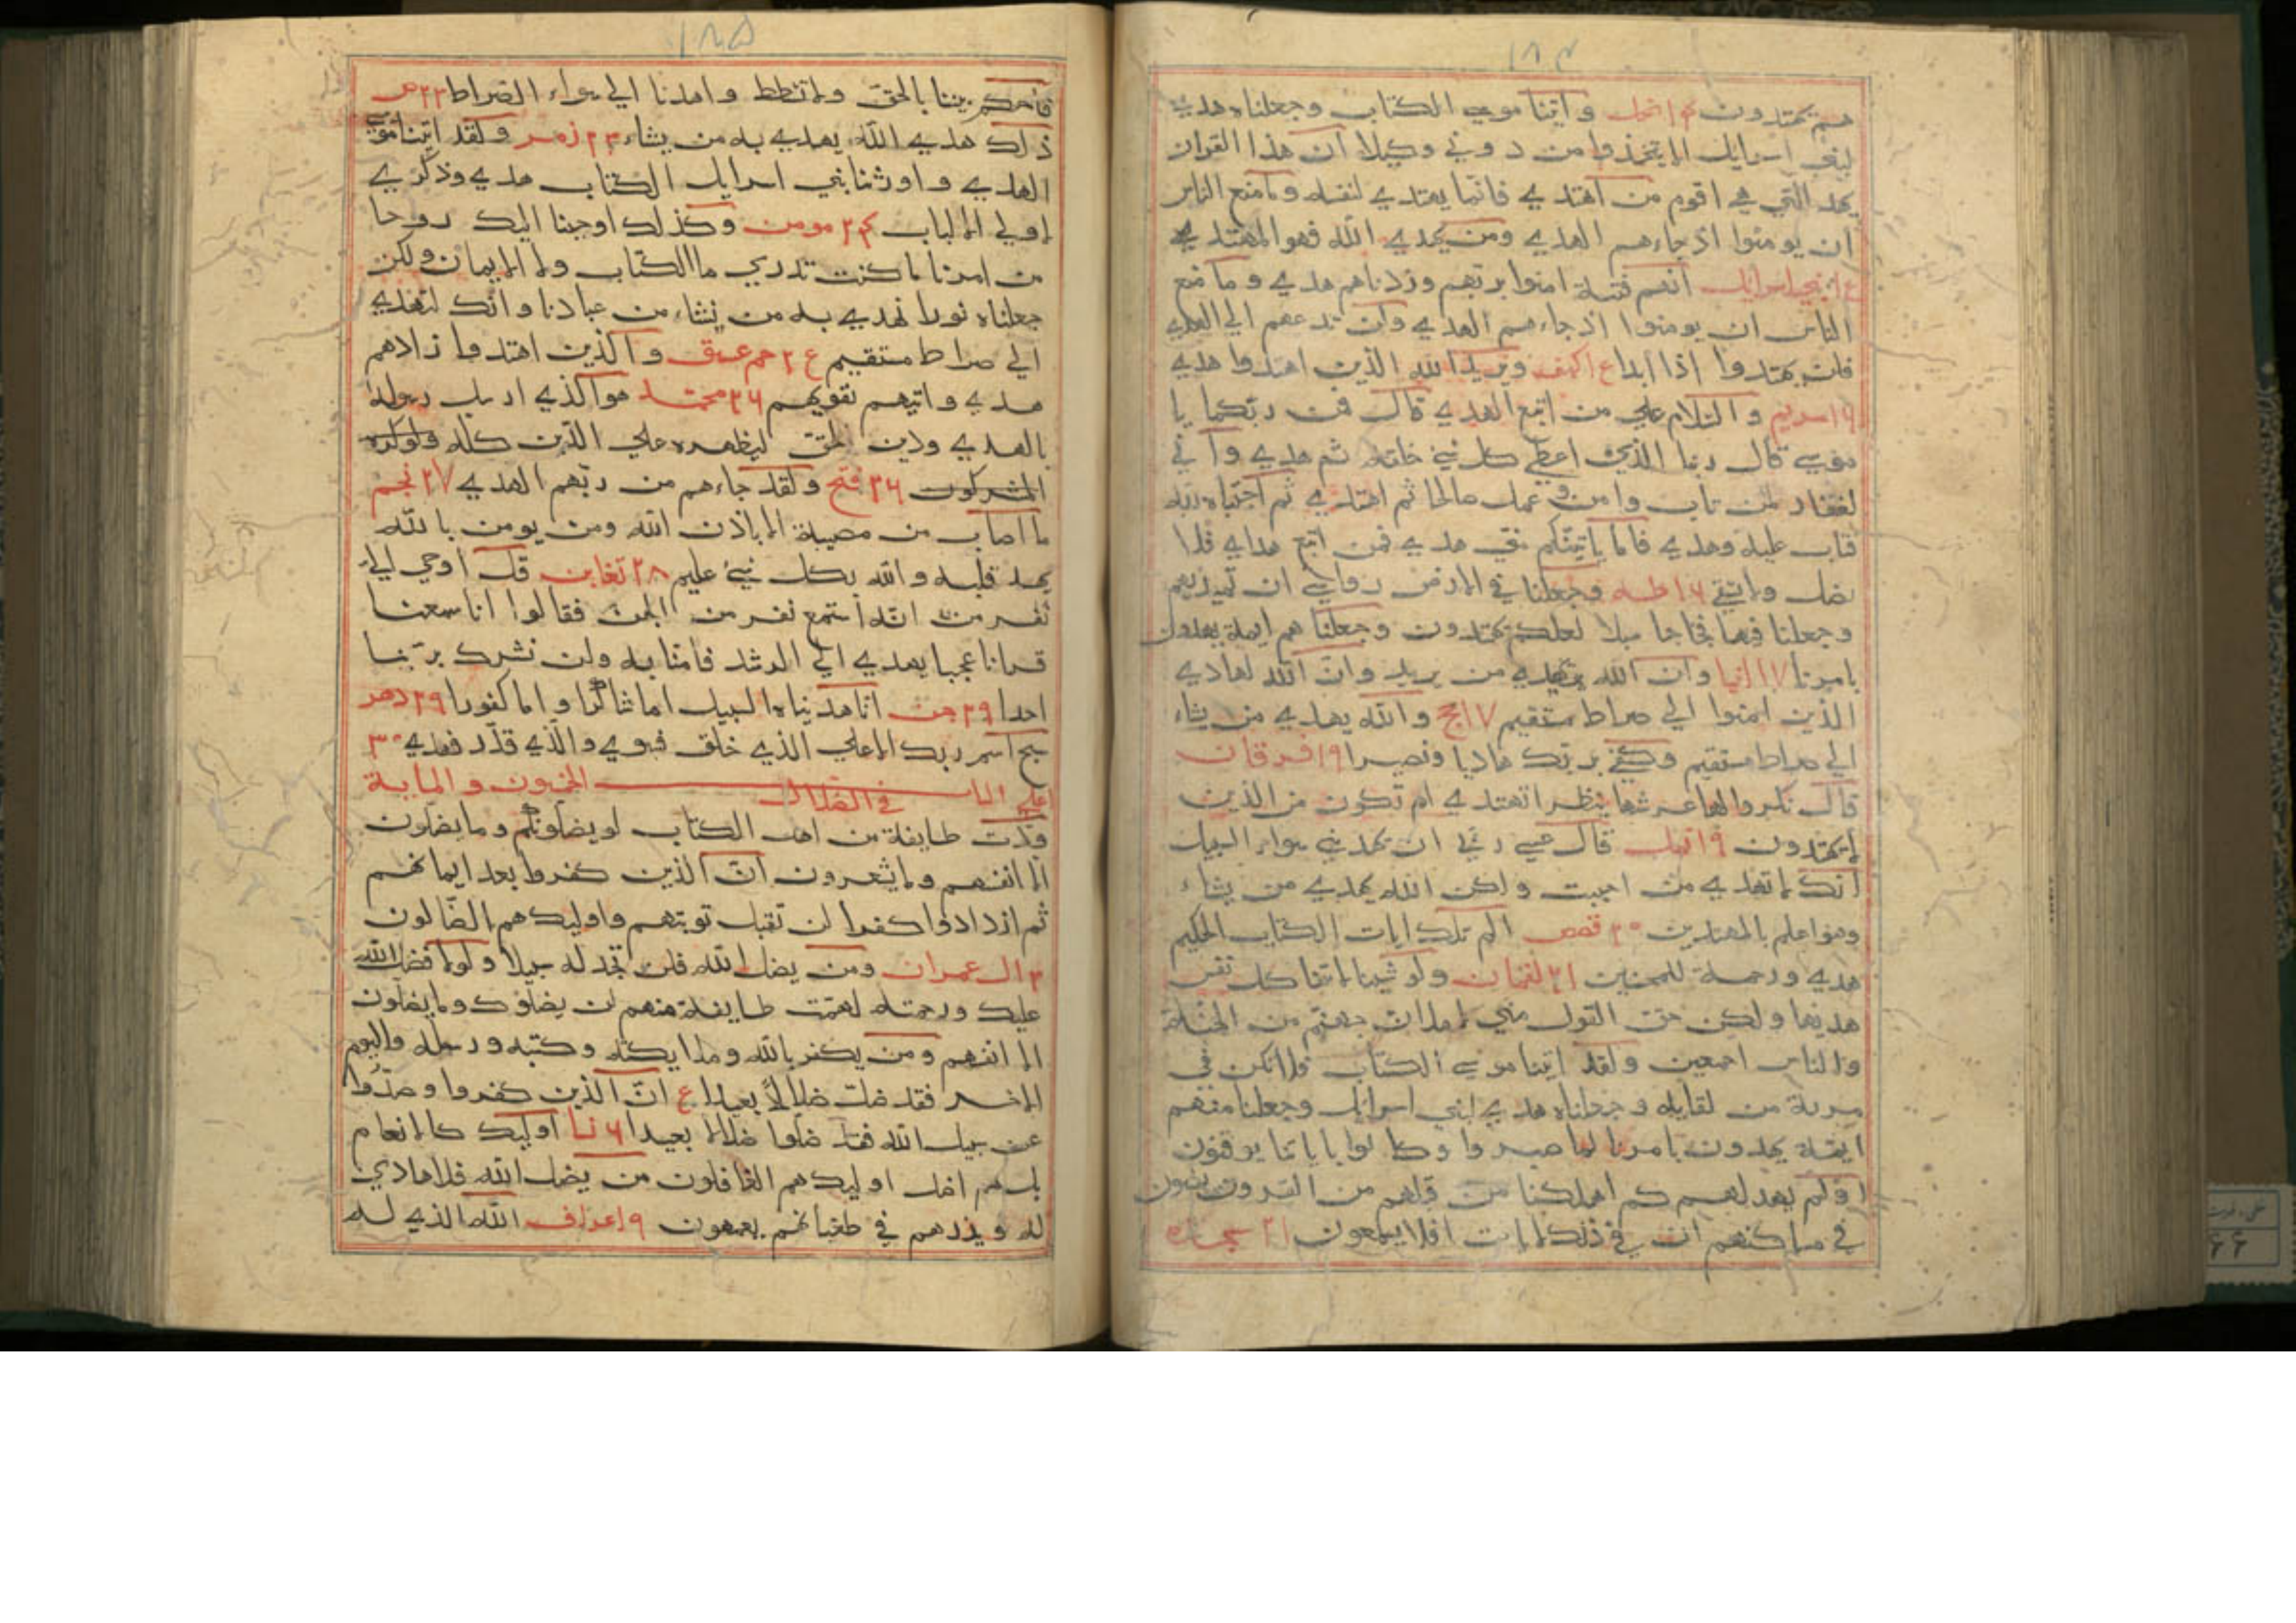 ١٨٤
هم يهتدون ١٤ نحل واتينا موسي الكتاب وجعلناه هدي
لبني اسرايل الا يتخذوا من دوني وكيلا ان هذا القران
يهد التي هي اقوم من اهتدي فانما يهتدي لنفسه وما منع الناس
ان يومنوا اذ جاءهم الهدي ومن يهدي الله فهو المهتدي
بني اسرايل انهم فتية امنوا بربهم وزدناهم هدي وما منع
الناس ان يومنوا اذ جاءهم الهدي وان تدعهم الي الهدي
فلن يهتدوا اذا ابدا كهف ويزيد الله الذين اهتدوا هدي
١٦ مريم والسلام علي من اتبع الهدي قال فمن ربكما يا
موسي قال ربنا الذي اعطي كل شئ خلقه ثم هدي واني
لغفار لمن تاب وامن وعمل صالحا ثم اهتدي ثم اجتباه ربه
فتاب عليه وهدي فاما ياتينكم مني هدي فمن اتبع هداي فلا
يضل ولا يشقي ١٦ طه وجعلنا في الارض رواسي ان تميد بهم
وجعلنا فيها فجاجا سبلا لعلهم يهتدون وجعلناهم ايمة يهدون
بامرنا ١٧ انبيا وان الله يهدي من يريد وان الله لهادي
الذين امنوا الي صراط مستقيم ١٧ حج والله يهدي من يشاء
الي صراط مستقيم وكفي بربك هاديا ونصيرا ١٩ فرقان
قال نكروا لها عرشها ننظر اتهتدي ام تكون من الذين
لا يهتدون ١٩ نمل قال عسي ربي ان يهديني سواء السبيل
انك لا تهدي من احببت ولكن الله يهدي من يشاء
وهو اعلم بالمهتدين ٢٠ قصص الم تلك ايات الكتاب الحكيم
هدي ورحمة للمحسنين ٢١ لقمان ولو شينا لاتينا كل نفس
هديها ولكن حق القول مني لاملان جهنم من الجنة
والناس اجمعين ولقد اتينا موسي الكتاب فلا تكن في
مرية من لقايه وجعلناه هدي لبني اسرايل وجعلنا منهم
ايمة يهدون بامرنا لما صبروا وكانوا باياتنا يوقنون
اولم يهد لهم كم اهلكنا من قبلهم من القرون يمشون
في مساكنهم ان في ذلك لايات افلا يسمعون ٢١ سجده
١٨٥
فاحكم بيننا بالحق ولا تشطط واهدنا الي سواء الصراط ٢٣ ص
ذلك هدي الله يهدي به من يشاء ٢٣ زمر ولقد اتينا موسي
الهدي واورثنا بني اسرايل الكتاب هدي وذكري
لاولي الالباب ٢٤ مومن وكذلك اوحينا اليك روحا
من امرنا ما كنت تدري ما الكتاب ولا الايمان ولكن
جعلناه نورا نهدي به من نشاء من عبادنا وانك لتهدي
الي صراط مستقيم ع ٢ حم عسق والذين اهتدوا زادهم
هدي واتيهم تقويهم ٢٦ محمد هو الذي ارسل رسوله
بالهدي ودين الحق ليظهره علي الدين كله ولو كره
المشركون ٢٦ فتح ولقد جاءهم من ربهم الهدي ٢٧ نجم
ما اصاب من مصيبة الا باذن الله ومن يومن بالله
يهد قلبه والله بكل شئ عليم ٢٨ تغابن قل اوحي الي
نفر من انه استمع نفر من الجن فقالوا انا سمعنا
قرانا عجبا يهدي الي الرشد فامنا به ولن نشرك بربنا
احدا ٢٩ جن انا هديناه السبيل اما شاكرا واما كفورا ٢٩ دهر
سبح اسم ربك الاعلي الذي خلق فسوي والذي قدر فهدي ٣٠
اعلي الباب في الضلال الخمسون والماية
ودت طايفة من اهل الكتاب لو يضلونكم وما يضلون
الا انفسهم وما يشعرون ان الذين كفروا بعد ايمانهم
ثم ازدادوا كفرا لن تقبل توبتهم واوليك هم الضالون
٣ ال عمران ومن يضل الله فلن تجد له سبيلا ولولا فضل الله
عليك ورحمته لهمت طايفة منهم ان يضلوك وما يضلون
الا انفسهم ومن يكفر بالله وملايكته وكتبه ورسله واليوم
الاخر فقد ضل ضلالا بعيدا ع ان الذين كفروا وصدوا
عن سبيل الله قد ضلوا ضلالا بعيدا ٦ نسا اوليك كالانعام
بل هم اضل اوليك هم الغافلون من يضلل الله فلا هادي
له ويذرهم في طغيانهم يعمهون ٩ اعراف الله الذي له